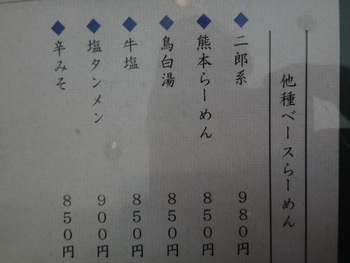 他種ベースらーめん
◆二郎系 980円
◆熊本らーめん 850円
◆鳥白湯 850円
◆牛塩 850円
◆塩タンメン 900円
◆辛みそ 850円